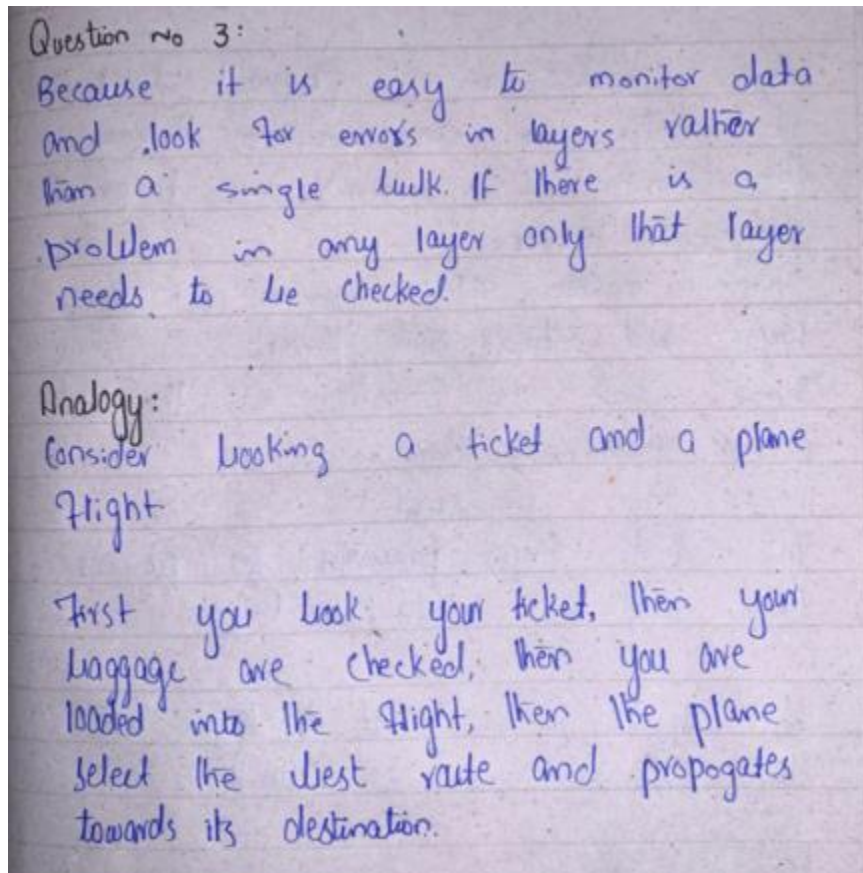 Question No 3:
Because it is easy to monitor data
and look for errors in layers rather
than a single bulk. If there is a
problem in any layer only that layer
needs to be checked.
Analogy:
Consider booking a ticket and a plane
flight
First you book your ticket, then your
baggage are checked, then you are
loaded into the flight, then the plane
select the best route and propogates
towards its destination.